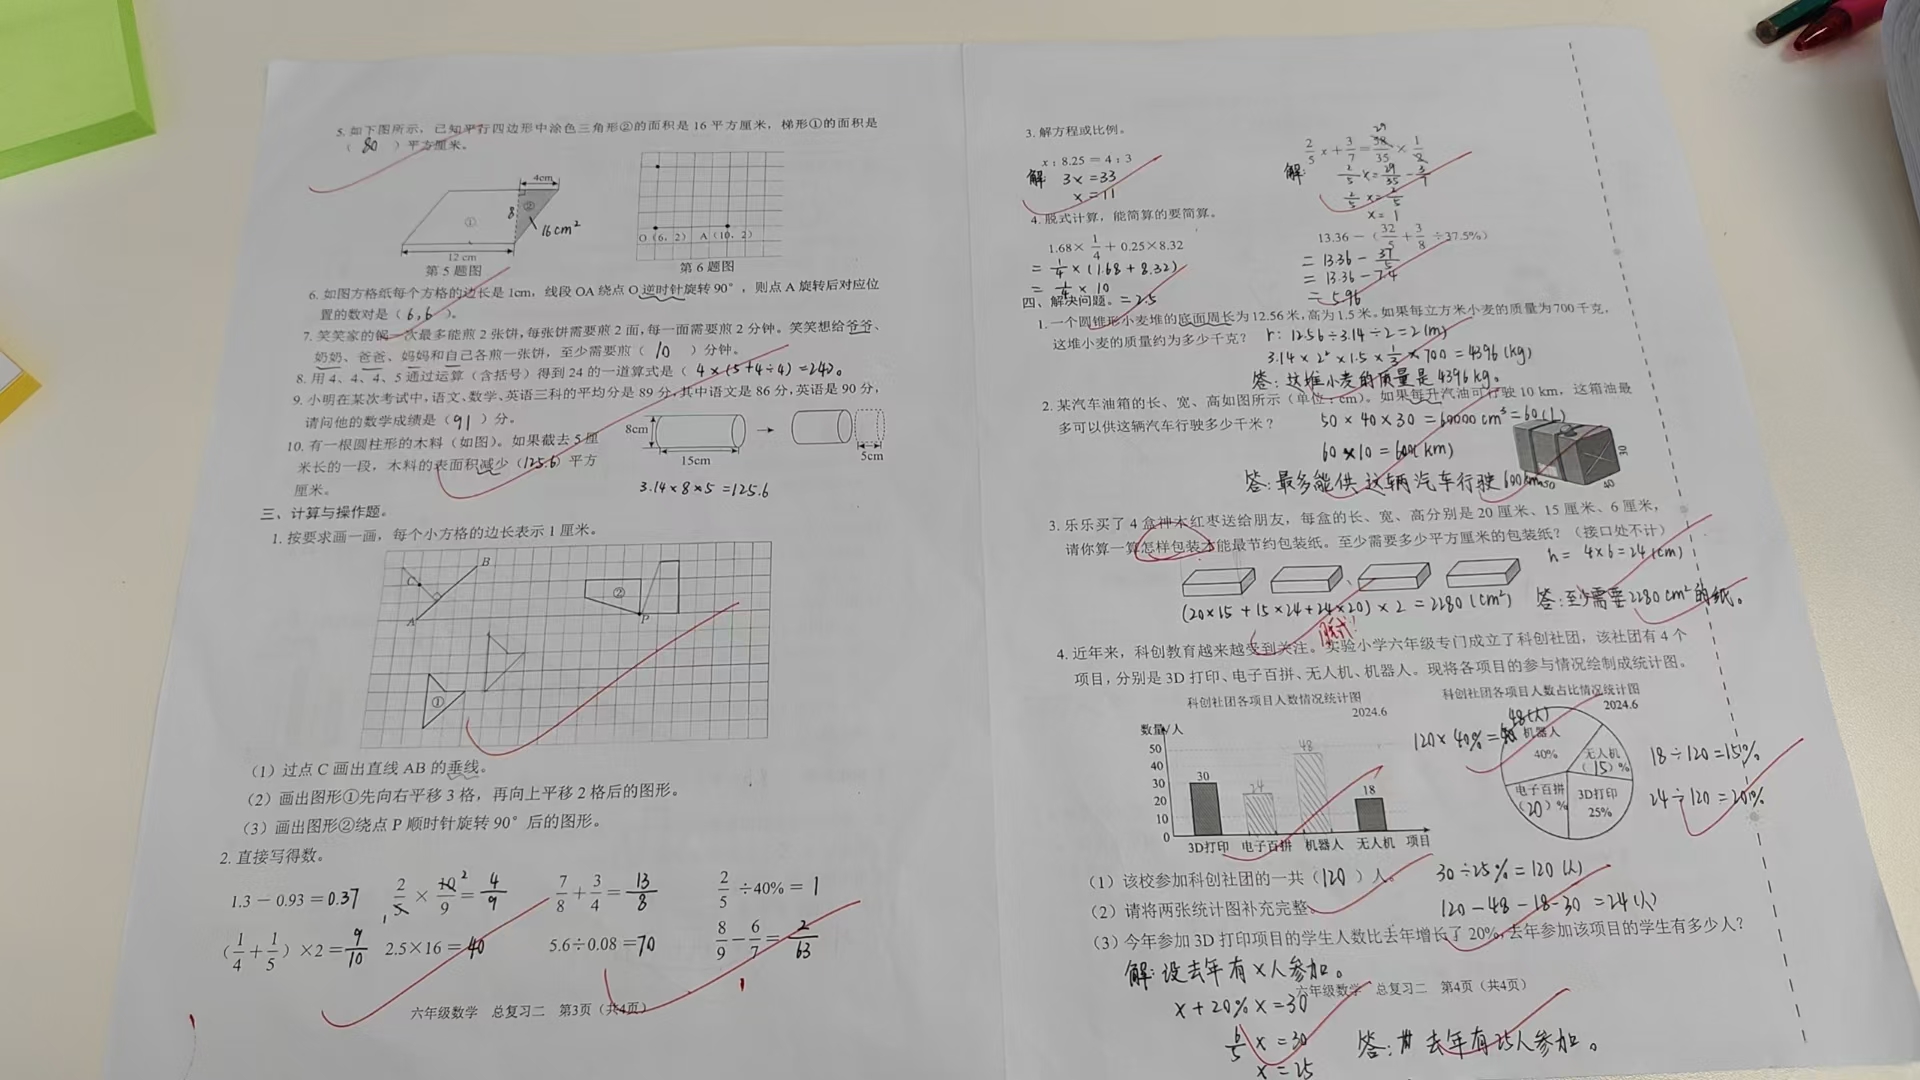 5. 如下图所示，已知平行四边形中涂色三角形②的面积是 16 平方厘米，梯形①的面积是
（ 80 ）平方厘米。
4cm
① 8 ② 16cm²
12 cm
第 5 题图
O（6，2） A（10，2）
第 6 题图
6. 如图方格纸每个方格的边长是 1cm，线段 OA 绕点 O 逆时针旋转 90°，则点 A 旋转后对应位
置的数对是（ 6,6 ）。
7. 笑笑家的锅一次最多能煎 2 张饼，每张饼需要煎 2 面，每一面需要煎 2 分钟。笑笑想给爷爷、
奶奶、爸爸、妈妈和自己各煎一张饼，至少需要煎（ 10 ）分钟。
8. 用 4、4、4、5 通过运算（含括号）得到 24 的一道算式是（ 4×(5+4÷4)=24 ）。
9. 小明在某次考试中，语文、数学、英语三科的平均分是 89 分，其中语文是 86 分，英语是 90 分，
请问他的数学成绩是（ 91 ）分。
10. 有一根圆柱形的木料（如图）。如果截去 5 厘
米长的一段，木料的表面积减少（125.6）平方
厘米。
8cm
15cm
5cm
3.14×8×5=125.6
三、计算与操作题。
1. 按要求画一画，每个小方格的边长表示 1 厘米。
C B A
② P
①
（1）过点 C 画出直线 AB 的垂线。
（2）画出图形①先向右平移 3 格，再向上平移 2 格后的图形。
（3）画出图形②绕点 P 顺时针旋转 90° 后的图形。
2. 直接写得数。
1.3－0.93＝0.37 2/5 × 10/9 = 4/9 7/8 + 3/4 = 13/8 2/5 ÷40%＝1
（1/4 + 1/5）×2＝9/10 2.5×16＝40 5.6÷0.08＝70 8/9 − 6/7 = 2/63
六年级数学 总复习二 第3页（共4页）
3. 解方程或比例。
x : 8.25 = 4 : 3
解 3x=33
x=11
2/5 x + 3/7 = 38/35 × 1/2
解: 2/5 x = 29/35 - 3/7
2/5 x = 2/5
x= 1
4. 脱式计算，能简算的要简算。
1.68× 1/4 + 0.25×8.32
= 1/4 ×(1.68+8.32)
= 1/4 × 10
=2.5
13.36－（32/5 + 3/8 ÷37.5%）
= 13.36 - 37/5
= 13.36-7.4
= 5.96
四、解决问题。
1. 一个圆锥形小麦堆的底面周长为 12.56 米，高为 1.5 米。如果每立方米小麦的质量为 700 千克，
这堆小麦的质量约为多少千克？ r: 12.56÷3.14÷2=2(m)
3.14×2²×1.5×1/3×700=4396(kg)
答: 这堆小麦的质量是 4396kg。
2. 某汽车油箱的长、宽、高如图所示（单位：cm）。如果每升汽油可行驶 10 km，这箱油最
多可以供这辆汽车行驶多少千米？ 50×40×30=60000cm³=60(l)
60×10=600(km)
答: 最多能供这辆汽车行驶 600km
50 40 30
3. 乐乐买了 4 盒神木红枣送给朋友，每盒的长、宽、高分别是 20 厘米、15 厘米、6 厘米，
请你算一算怎样包装才能最节约包装纸。至少需要多少平方厘米的包装纸？（接口处不计）
h= 4×6=24(cm)
(20×15+15×24+24×20)×2=2280(cm²) 答: 至少需要2280cm²的纸。
4. 近年来，科创教育越来越受到关注。实验小学六年级专门成立了科创社团，该社团有 4 个
项目，分别是 3D 打印、电子百拼、无人机、机器人。现将各项目的参与情况绘制成统计图。
科创社团各项目人数情况统计图
2024.6
数量/人
50
40
30
20
10
0
30 24 48 18
3D打印 电子百拼 机器人 无人机 项目
科创社团各项目人数占比情况统计图
2024.6
120×40%= 48(人)
机器人
40%
无人机
（15）%
电子百拼
（20）%
3D打印
25%
18÷120=15%
24÷120=20%
（1）该校参加科创社团的一共（120 ）人。 30÷25%=120(人)
（2）请将两张统计图补充完整。 120-48-18-30=24(人)
（3）今年参加 3D 打印项目的学生人数比去年增长了 20%，去年参加该项目的学生有多少人？
解: 设去年有x人参加。
六年级数学 总复习二 第4页（共4页）
x+20%x=30
6/5 x=30
x=25
答: 去年有25人参加。